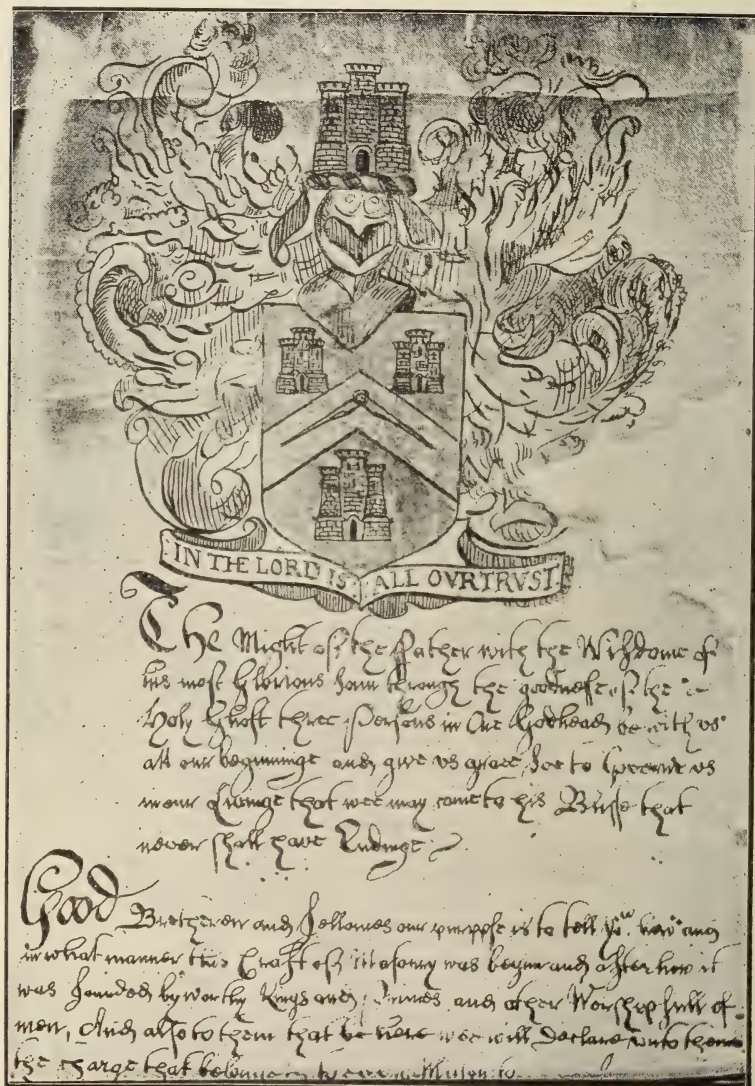 IN THE LORD IS ALL OVR TRVST
The Might of the ffather with the Wisdome of
his most Glorious Sonn through the goodnesse of the
Holy Ghost three Persons in One Godhead be with vs
att our beginninge and give vs grace soe to Governe vs
in our Liveinge that wee may come to his Blisse that
never shall have Endinge
Good Bretheren and Fellowes our purpose is to tell yow how and
in what manner this Craft of Masonry was begun and after how it
was founded by worthy Kings and Princes and other Worshipfull
men, And also to them that be here wee will Declare unto them
the Charge that